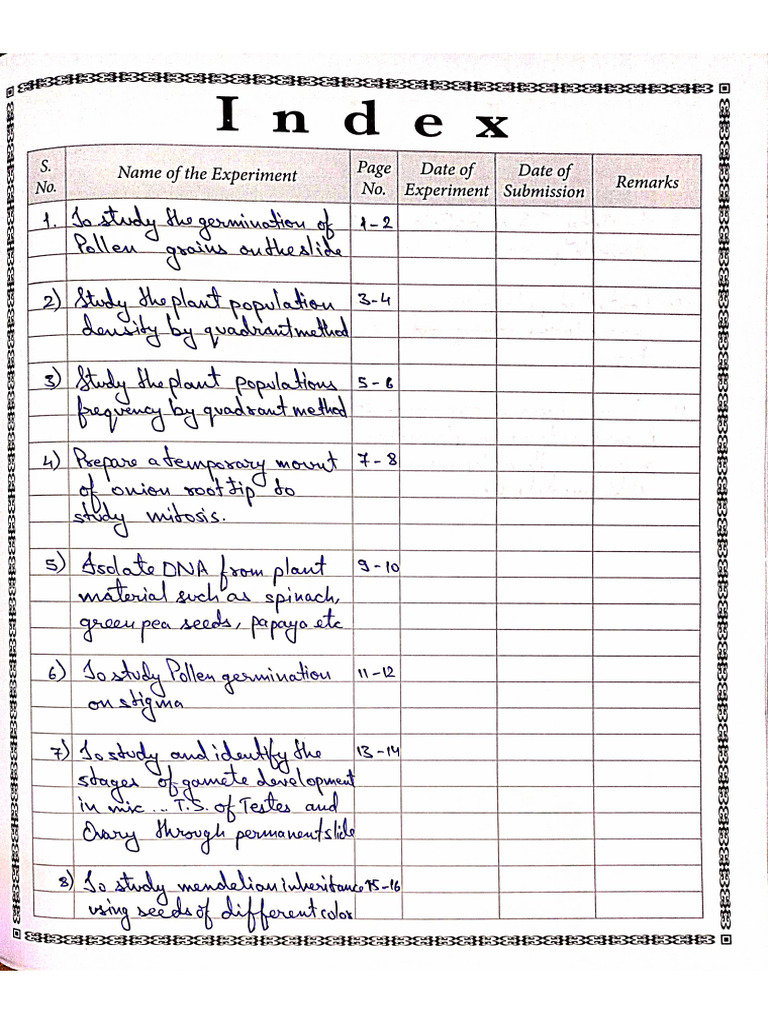 Index
S. No. Name of the Experiment Page No. Date of Experiment Date of Submission Remarks
1. To study the germination of 1-2
Pollen grains on the slide
2) Study the plant population 3-4
density by quadrant method
3) Study the plant populations 5-6
frequency by quadrant method
4) Prepare a temporary mount 7-8
of onion root tip to
study mitosis.
5) Isolate DNA from plant 9-10
material such as spinach,
green pea seeds, papaya etc
6) To study Pollen germination 11-12
on stigma
7) To study and identify the 13-14
stages of gamete development
in mic... T.S. of Testes and
Ovary through permanent slide
8) To study mendelian inheritance 15-16
using seeds of different color